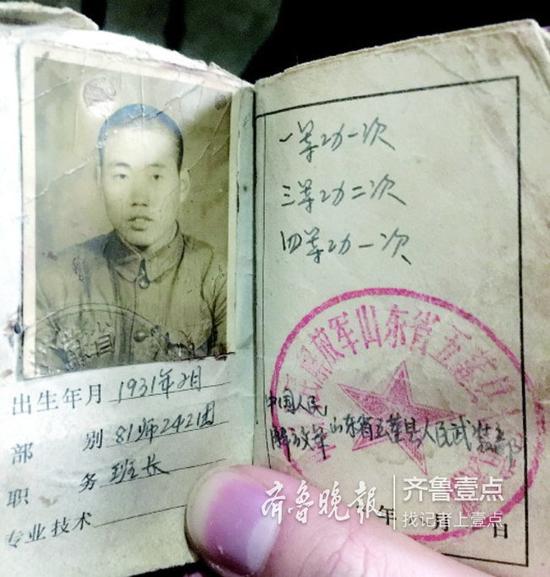 出生年月 1931年2月
部别 81师242团
职务 班长
专业技术
一等功一次
三等功二次
四等功一次
中国人民
解放军山东省五莲县人民武装部
年 月 日
齐鲁晚报
齐鲁壹点
找记者上壹点